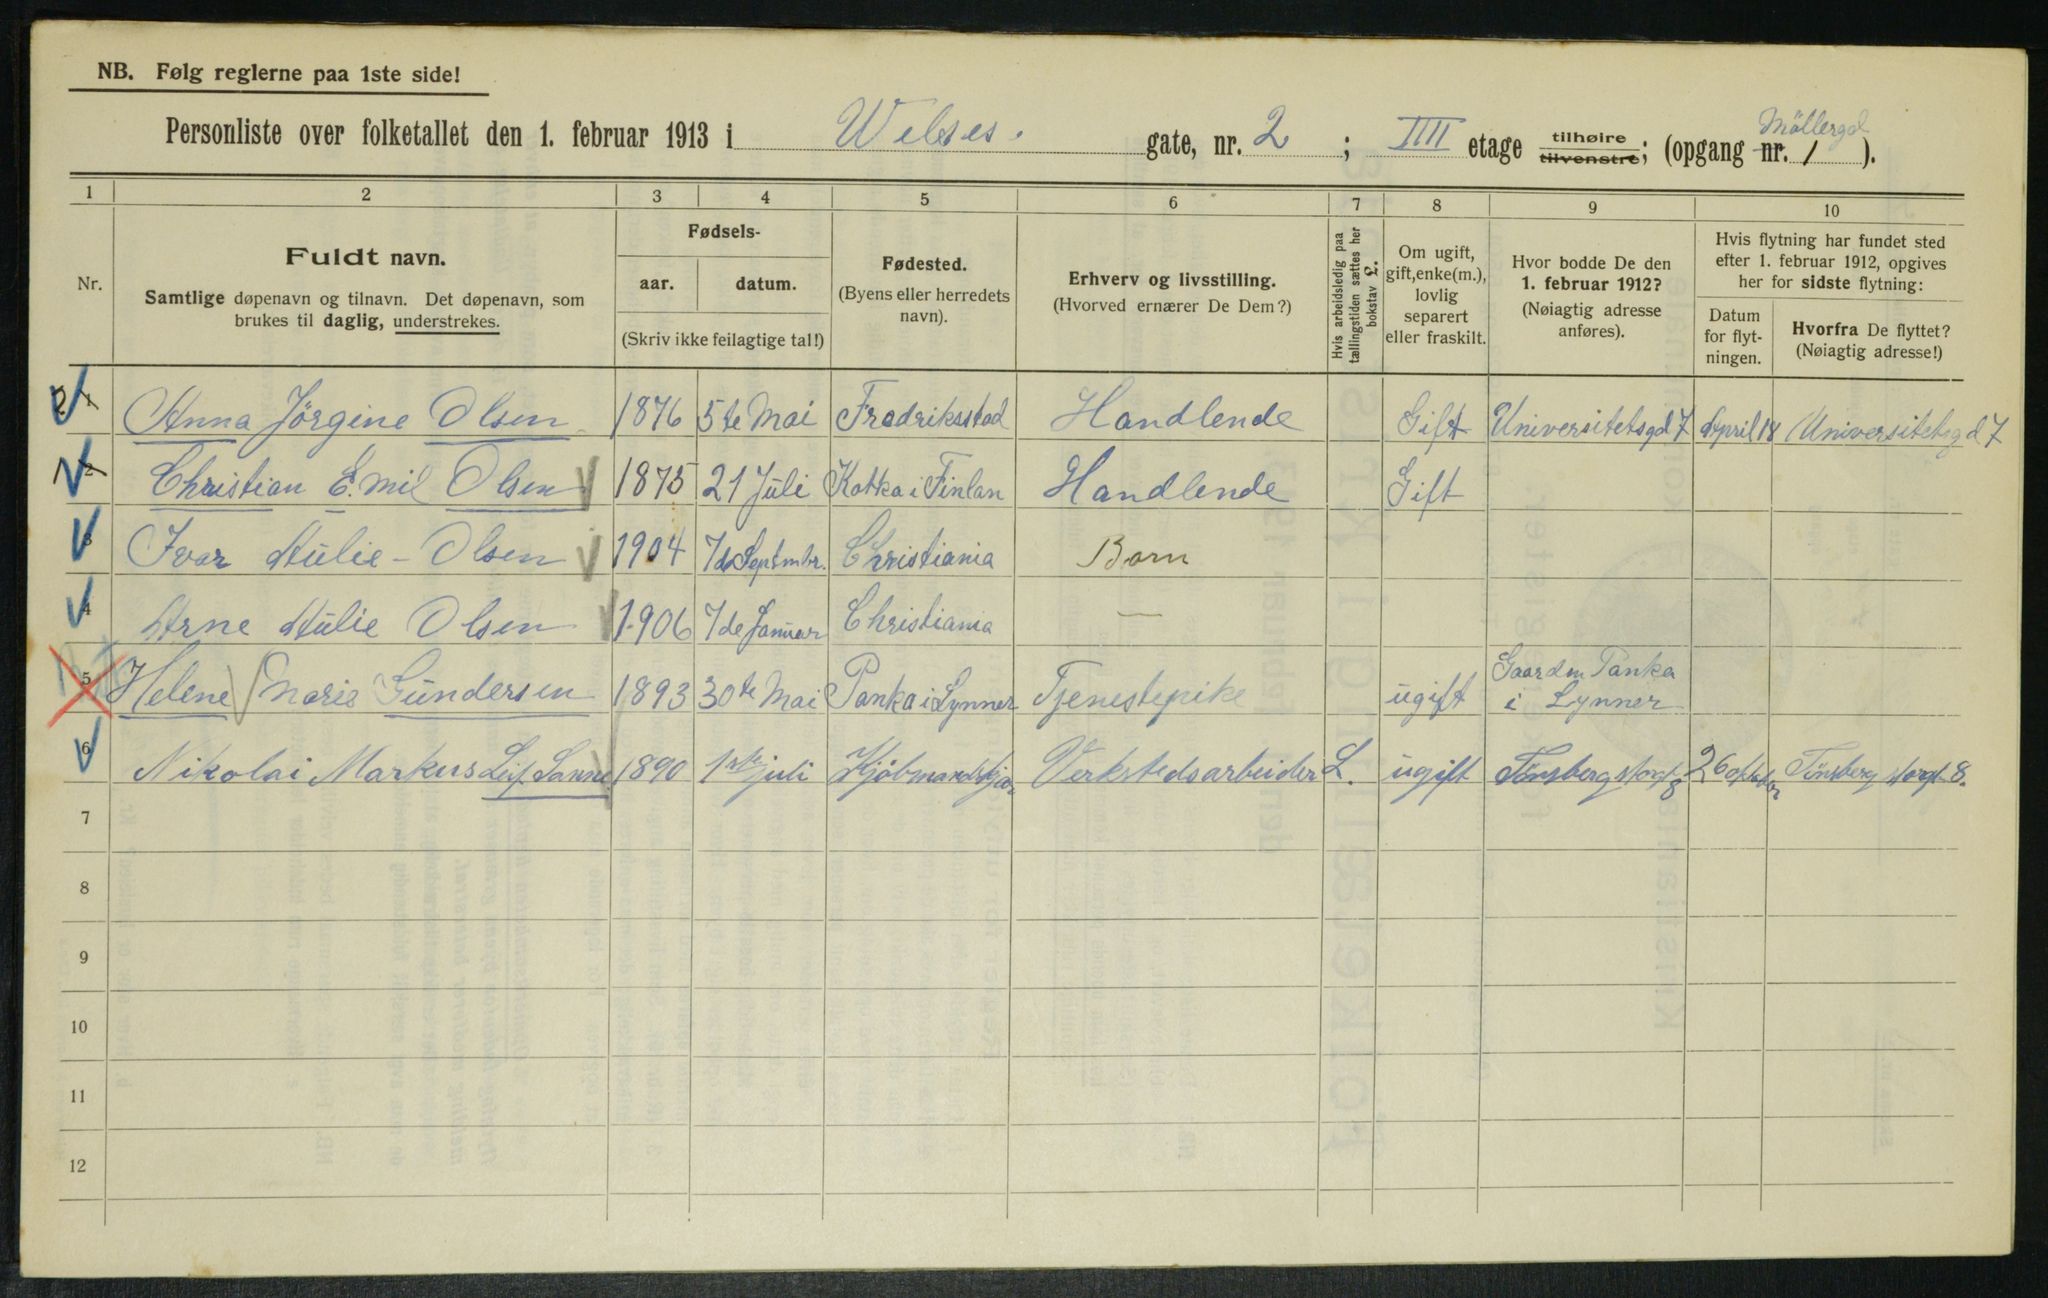 NB. Følg reglerne paa 1ste side!
Personliste over folketallet den 1. februar 1913 i Welses. gate, nr. 2 ; IIII etage tilhøire tilvenstre; (opgang nr. Möllergd 1 ).
1 2 3 4 5 6 7 8 9 10
Nr.
Fuldt navn.
Samtlige døpenavn og tilnavn. Det døpenavn, som
brukes til daglig, understrekes.
Fødsels-
aar. datum.
(Skriv ikke feilagtige tal!)
Fødested.
(Byens eller herredets
navn).
Erhverv og livsstilling.
(Hvorved ernærer De Dem?)
Hvis arbeidsledig paa
tællingstiden sættes her
bokstav L.
Om ugift,
gift, enke(m.),
lovlig
separert
eller fraskilt.
Hvor bodde De den
1. februar 1912?
(Nøiagtig adresse
anføres).
Hvis flytning har fundet sted
efter 1. februar 1912, opgives
her for sidste flytning:
Datum
for flyt-
ningen.
Hvorfra De flyttet?
(Nøiagtig adresse!)
1 Anna Jörgine Olsen 1876 5te Mai Fredriksstad Handlende Gift Universitetsgd 7 April 18 Universitetsgd 7
2 Christian Emil Olsen 1875 21 Juli Kotka i Finlan Handlende Gift
3 Ivar Aulie - Olsen 1904 7de Septmbr. Christiania Barn
4 Arne Aulie Olsen 1906 7de Januar Christiania —
5 Helene Marie Gundersen 1893 30te Mai Panka i Lynner Tjenestepike ugift Gaarden Panka
i Lynner
6 Nikolai Markus Leif Sanne 1890 1ste juli Kjøbmandskjær Verkstedsarbeider L. ugift Tönsberg storgt 8 26 oktober Tönsberg storgt 8.
7
8
9
10
11
12